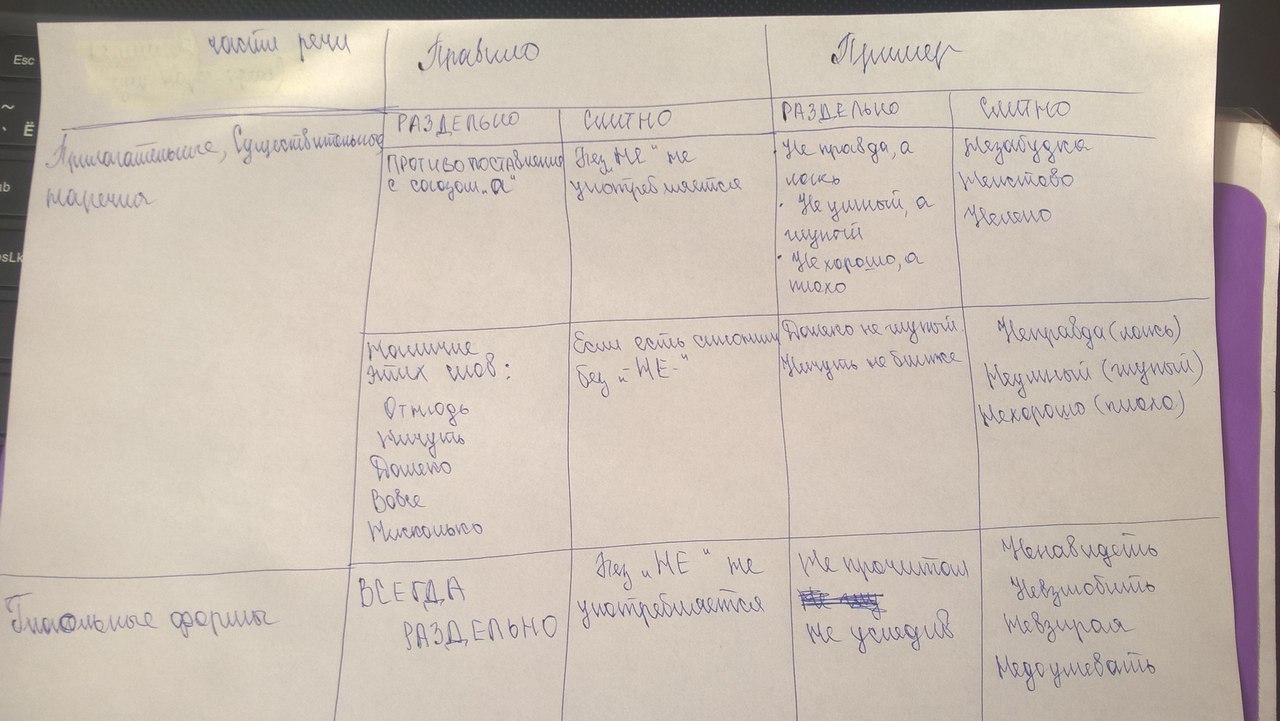 части речи
Правило
Пример
РАЗДЕЛЬНО
СЛИТНО
РАЗДЕЛЬНО
СЛИТНО
Прилагательные, Существительное
наречия
ПРОТИВОПОСТАВЛЕНИЕ
с союзом „а“
Без „НЕ“ не
употребляется
· Не правда, а
ложь
· Не умный, а
глупый
· Не хорошо, а
плохо
Незабудка
Неистово
Нелепо
Наличие
этих слов:
Отнюдь
Ничуть
Далеко
Вовсе
Нисколько
Если есть синоним
без „НЕ-“
Далеко не глупый
Ничуть не ближе
Неправда (ложь)
Неумный (глупый)
Нехорошо (плохо)
Глагольные формы
ВСЕГДА
РАЗДЕЛЬНО
Без „НЕ“ не
употребляется
Не прочитал
Не уследив
Ненавидеть
Невзлюбить
Невзирая
Недоумевать
Esc
~
Ё